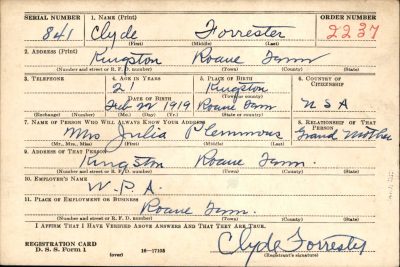 SERIAL NUMBER 1. NAME (Print) ORDER NUMBER
841 Clyde Forrester 2237
(First) (Middle) (Last)
2. ADDRESS (Print)
Kingston Roane Tenn
(Number and street or R. F. D. number) (Town) (County) (State)
3. TELEPHONE 4. AGE IN YEARS 5. PLACE OF BIRTH 6. COUNTRY OF CITIZENSHIP
21 Kingston
DATE OF BIRTH (Town or county)
Feb 1919 Roane Tenn USA
(Exchange) (Number) (Mo.) (Day) (Yr.) (State or country)
7. NAME OF PERSON WHO WILL ALWAYS KNOW YOUR ADDRESS 8. RELATIONSHIP OF THAT PERSON
Mrs Julia Plemmons Grand Mother
(Mr., Mrs., Miss) (First) (Middle) (Last)
9. ADDRESS OF THAT PERSON
Kingston Roane Tenn.
(Number and street or R. F. D. number) (Town) (County) (State)
10. EMPLOYER'S NAME
W.P.A.
11. PLACE OF EMPLOYMENT OR BUSINESS
Roane Tenn.
(Number and street or R. F. D. number) (Town) (County) (State)
I AFFIRM THAT I HAVE VERIFIED ABOVE ANSWERS AND THAT THEY ARE TRUE.
REGISTRATION CARD
D. S. S. Form 1 (over) 16—17105
Clyde Forrester
(Registrant's signature)